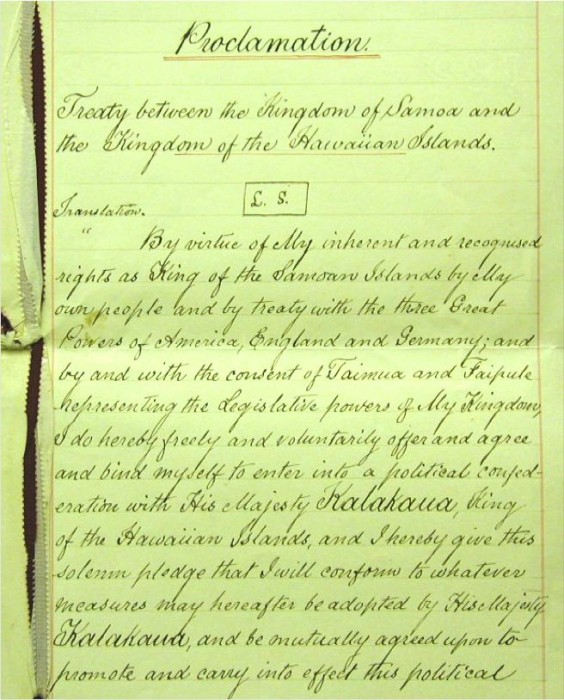 Proclamation.
Treaty between the Kingdom of Samoa and
the Kingdom of the Hawaiian Islands.
L. S.
Translation.
" By virtue of My inherent and recognised
rights as King of the Samoan Islands by My
own people and by treaty with the three Great
Powers of America, England and Germany; and
by and with the consent of Taimua and Faipule
representing the Legislative powers of My Kingdom,
I do hereby freely and voluntarily offer and agree
and bind myself to enter into a political confed-
eration with His Majesty Kalakaua, King
of the Hawaiian Islands, and I hereby give this
solemn pledge that I will conform to whatever
measures may hereafter be adopted by His Majesty
Kalakaua, and be mutually agreed upon to
promote and carry into effect this political